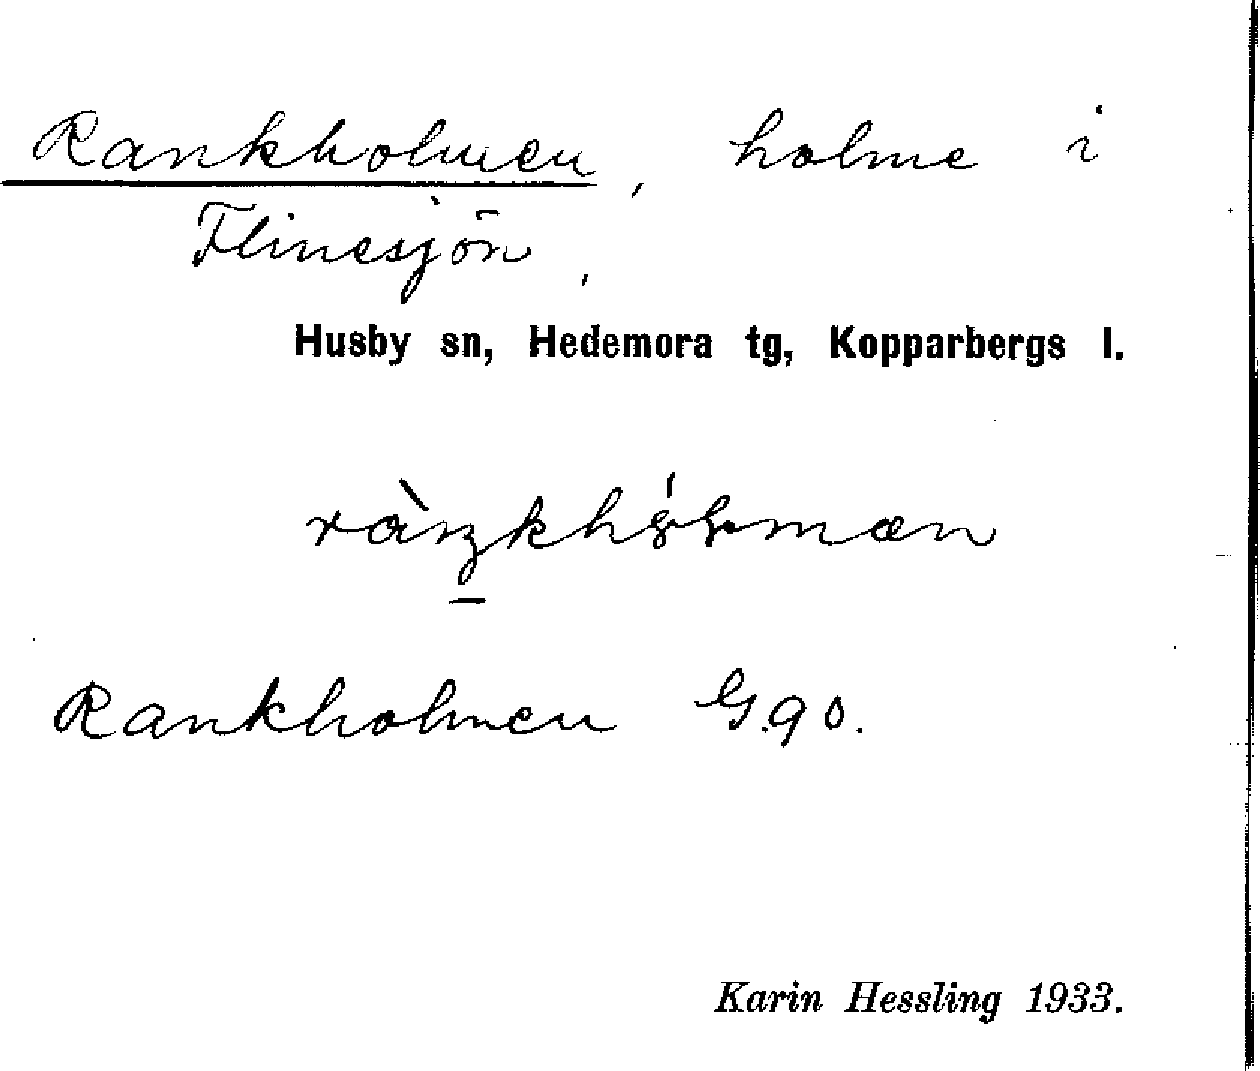 Rankholmen, holme i
Flinesjön,
Husby sn, Hedemora tg, Kopparbergs l.
Rankholmen G.90.
Karin Hessling 1933.